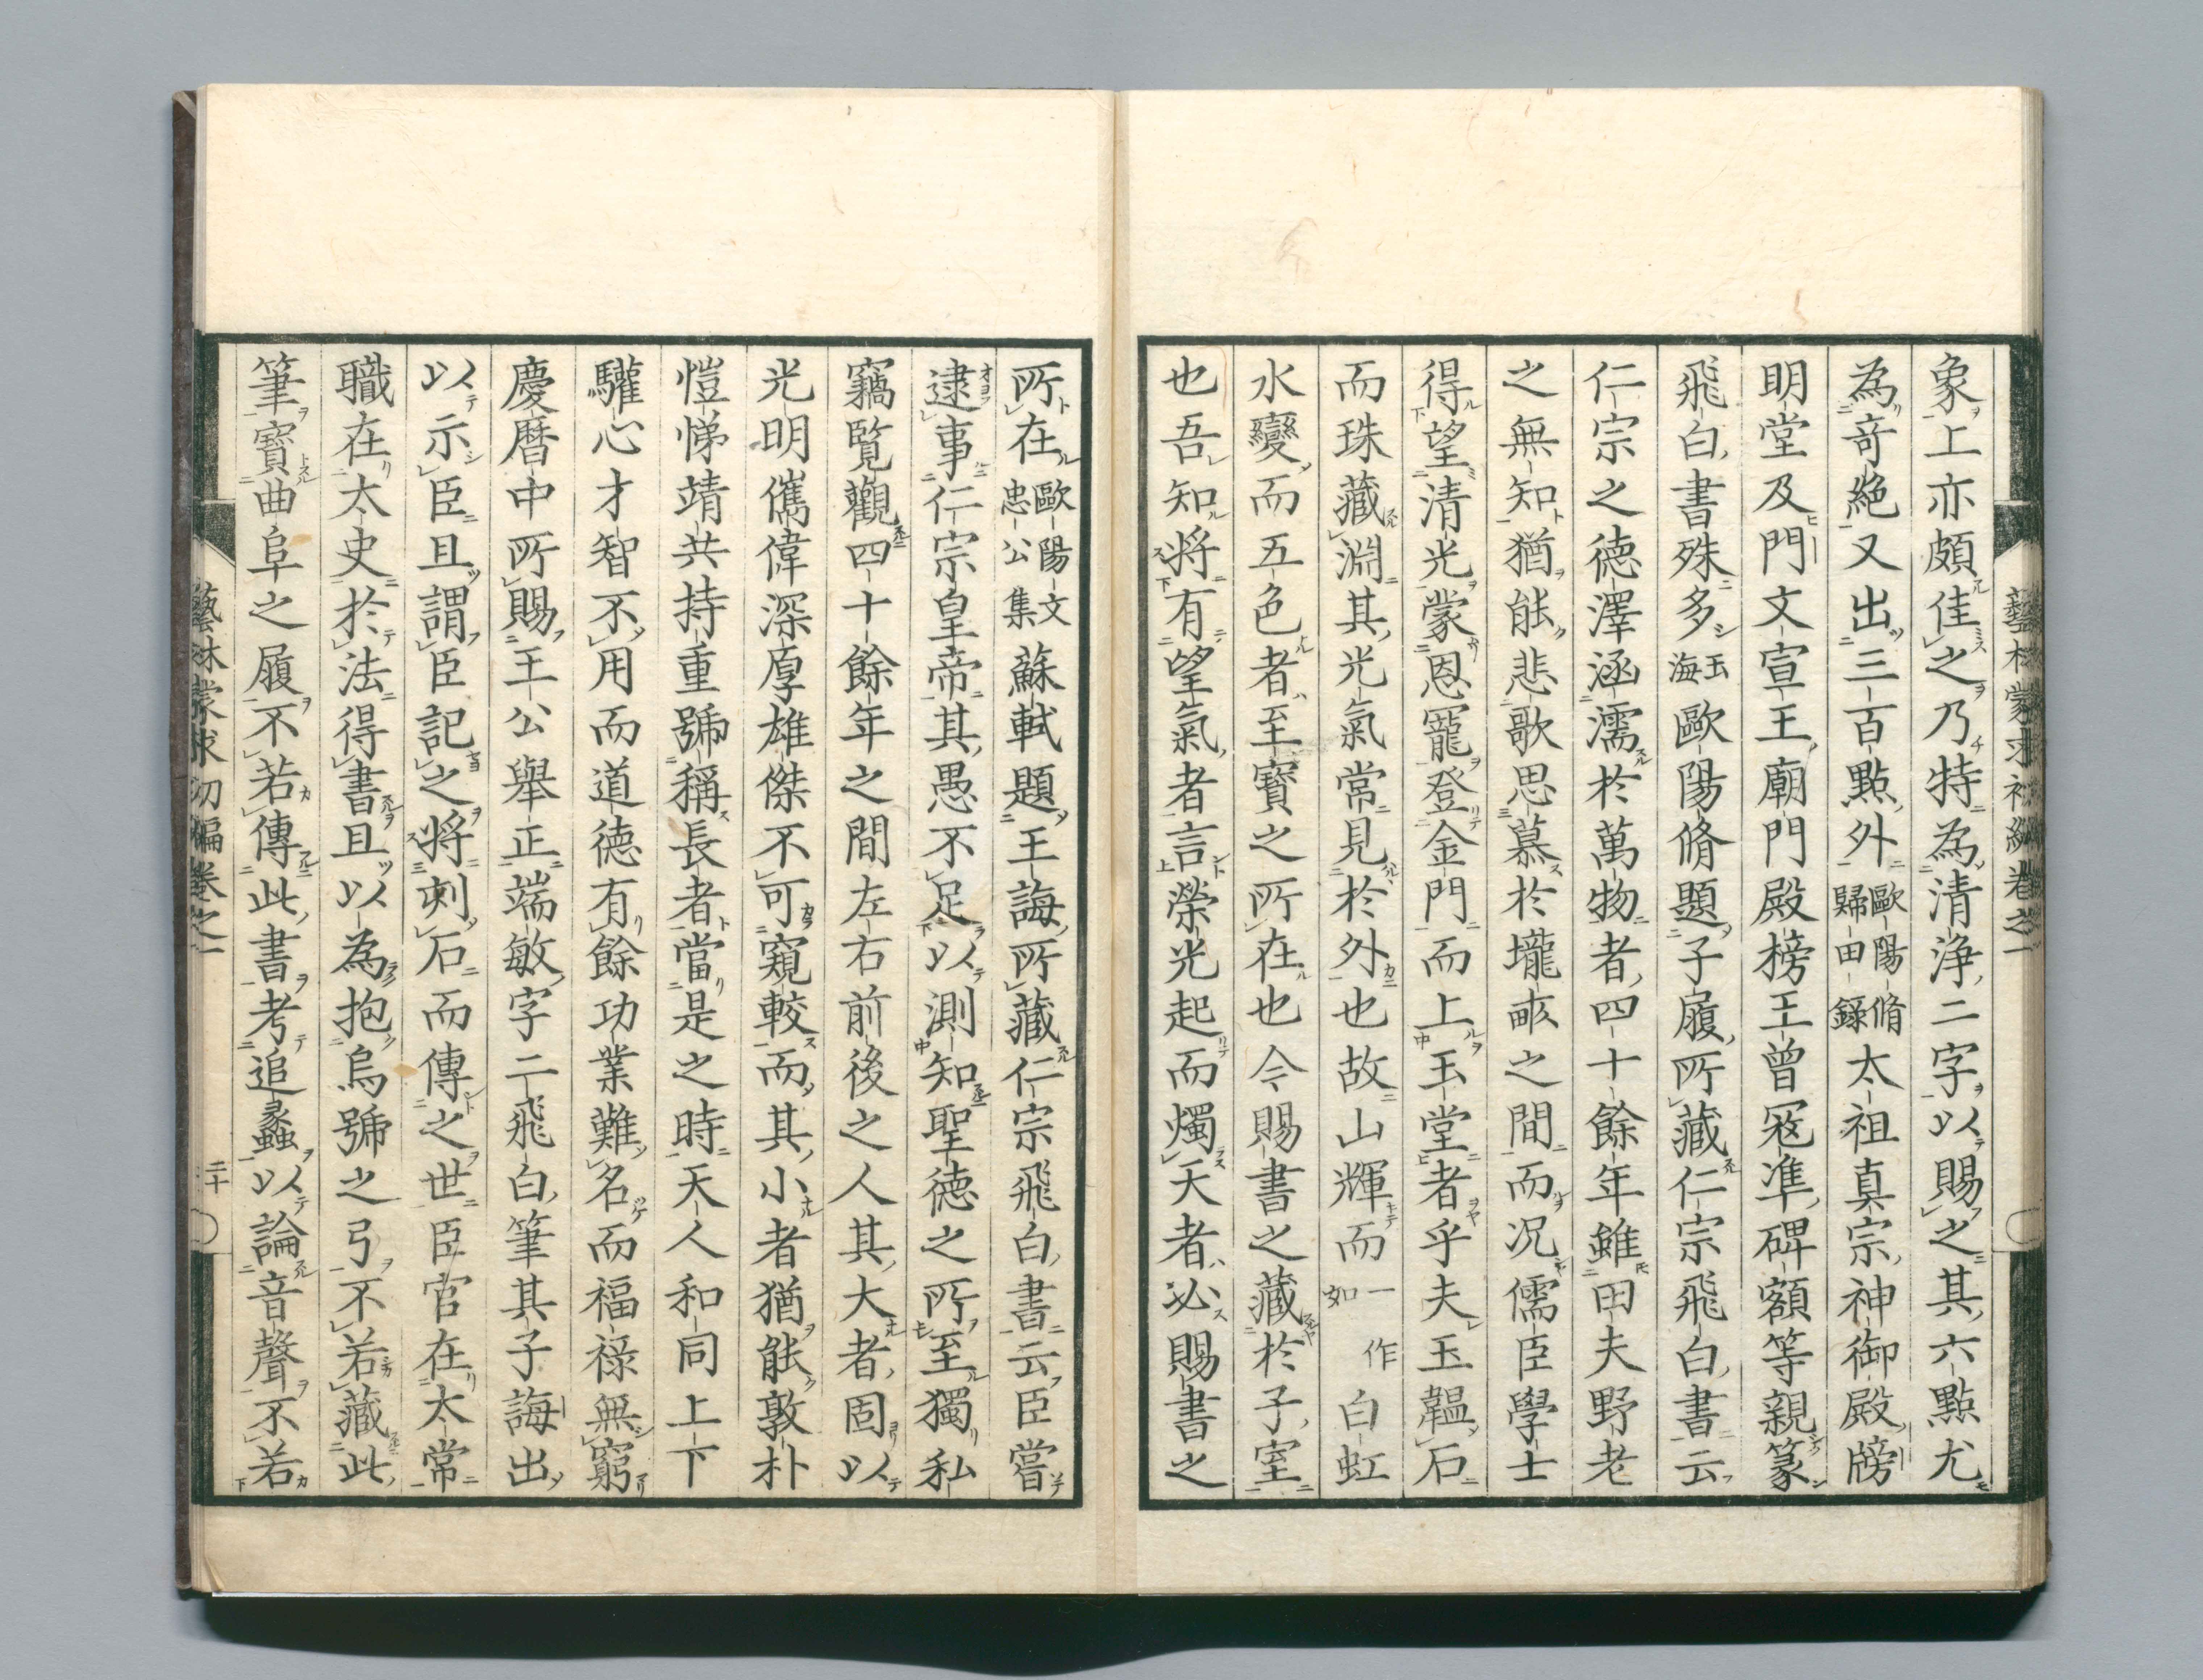 藝林蒙求初編卷之一
象上亦頗佳之乃特為清浄二字以賜之其六點尤
為竒絶又出三百點外歐陽脩歸田錄太祖真宗神御殿牓
明堂及門文宣王廟門殿榜王曾冦準碑額等親篆
飛白書殊多玉海歐陽脩題子履所藏仁宗飛白書云
仁宗之德澤涵濡於萬物者四十餘年雖田夫野老
之無知猶能悲歌思慕於壠畝之間而况儒臣學士
得望清光蒙恩寵登金門而上玉堂者乎夫玉韞石
而珠藏淵其光氣常見於外也故山輝而一作如白虹
水變而五色者至寶之所在也今賜書之藏於子室
也吾知將有望氣者言榮光起而燭天者必賜書之
所在歐陽文忠公集蘇軾題王誨所藏仁宗飛白書云臣嘗
逮事仁宗皇帝其愚不足以測知聖德之所至獨私
竊覽觀四十餘年之間左右前後之人其大者固以
光明儁偉深厚雄傑不可窺較而其小者猶能敦朴
愷悌靖共持重號稱長者當是之時天人和同上下
驩心才智不用而道德有餘功業難名而福祿無窮
慶曆中所賜王公舉正端敏字二飛白筆其子誨出
以示臣且謂臣記之將刻石而傳之世臣官在太常
職在太史於法得書且以為抱烏號之弓不若藏此
筆寶曲阜之履不若傳此書考追蠡以論音聲不若
藝林蒙求初編卷之一
二十